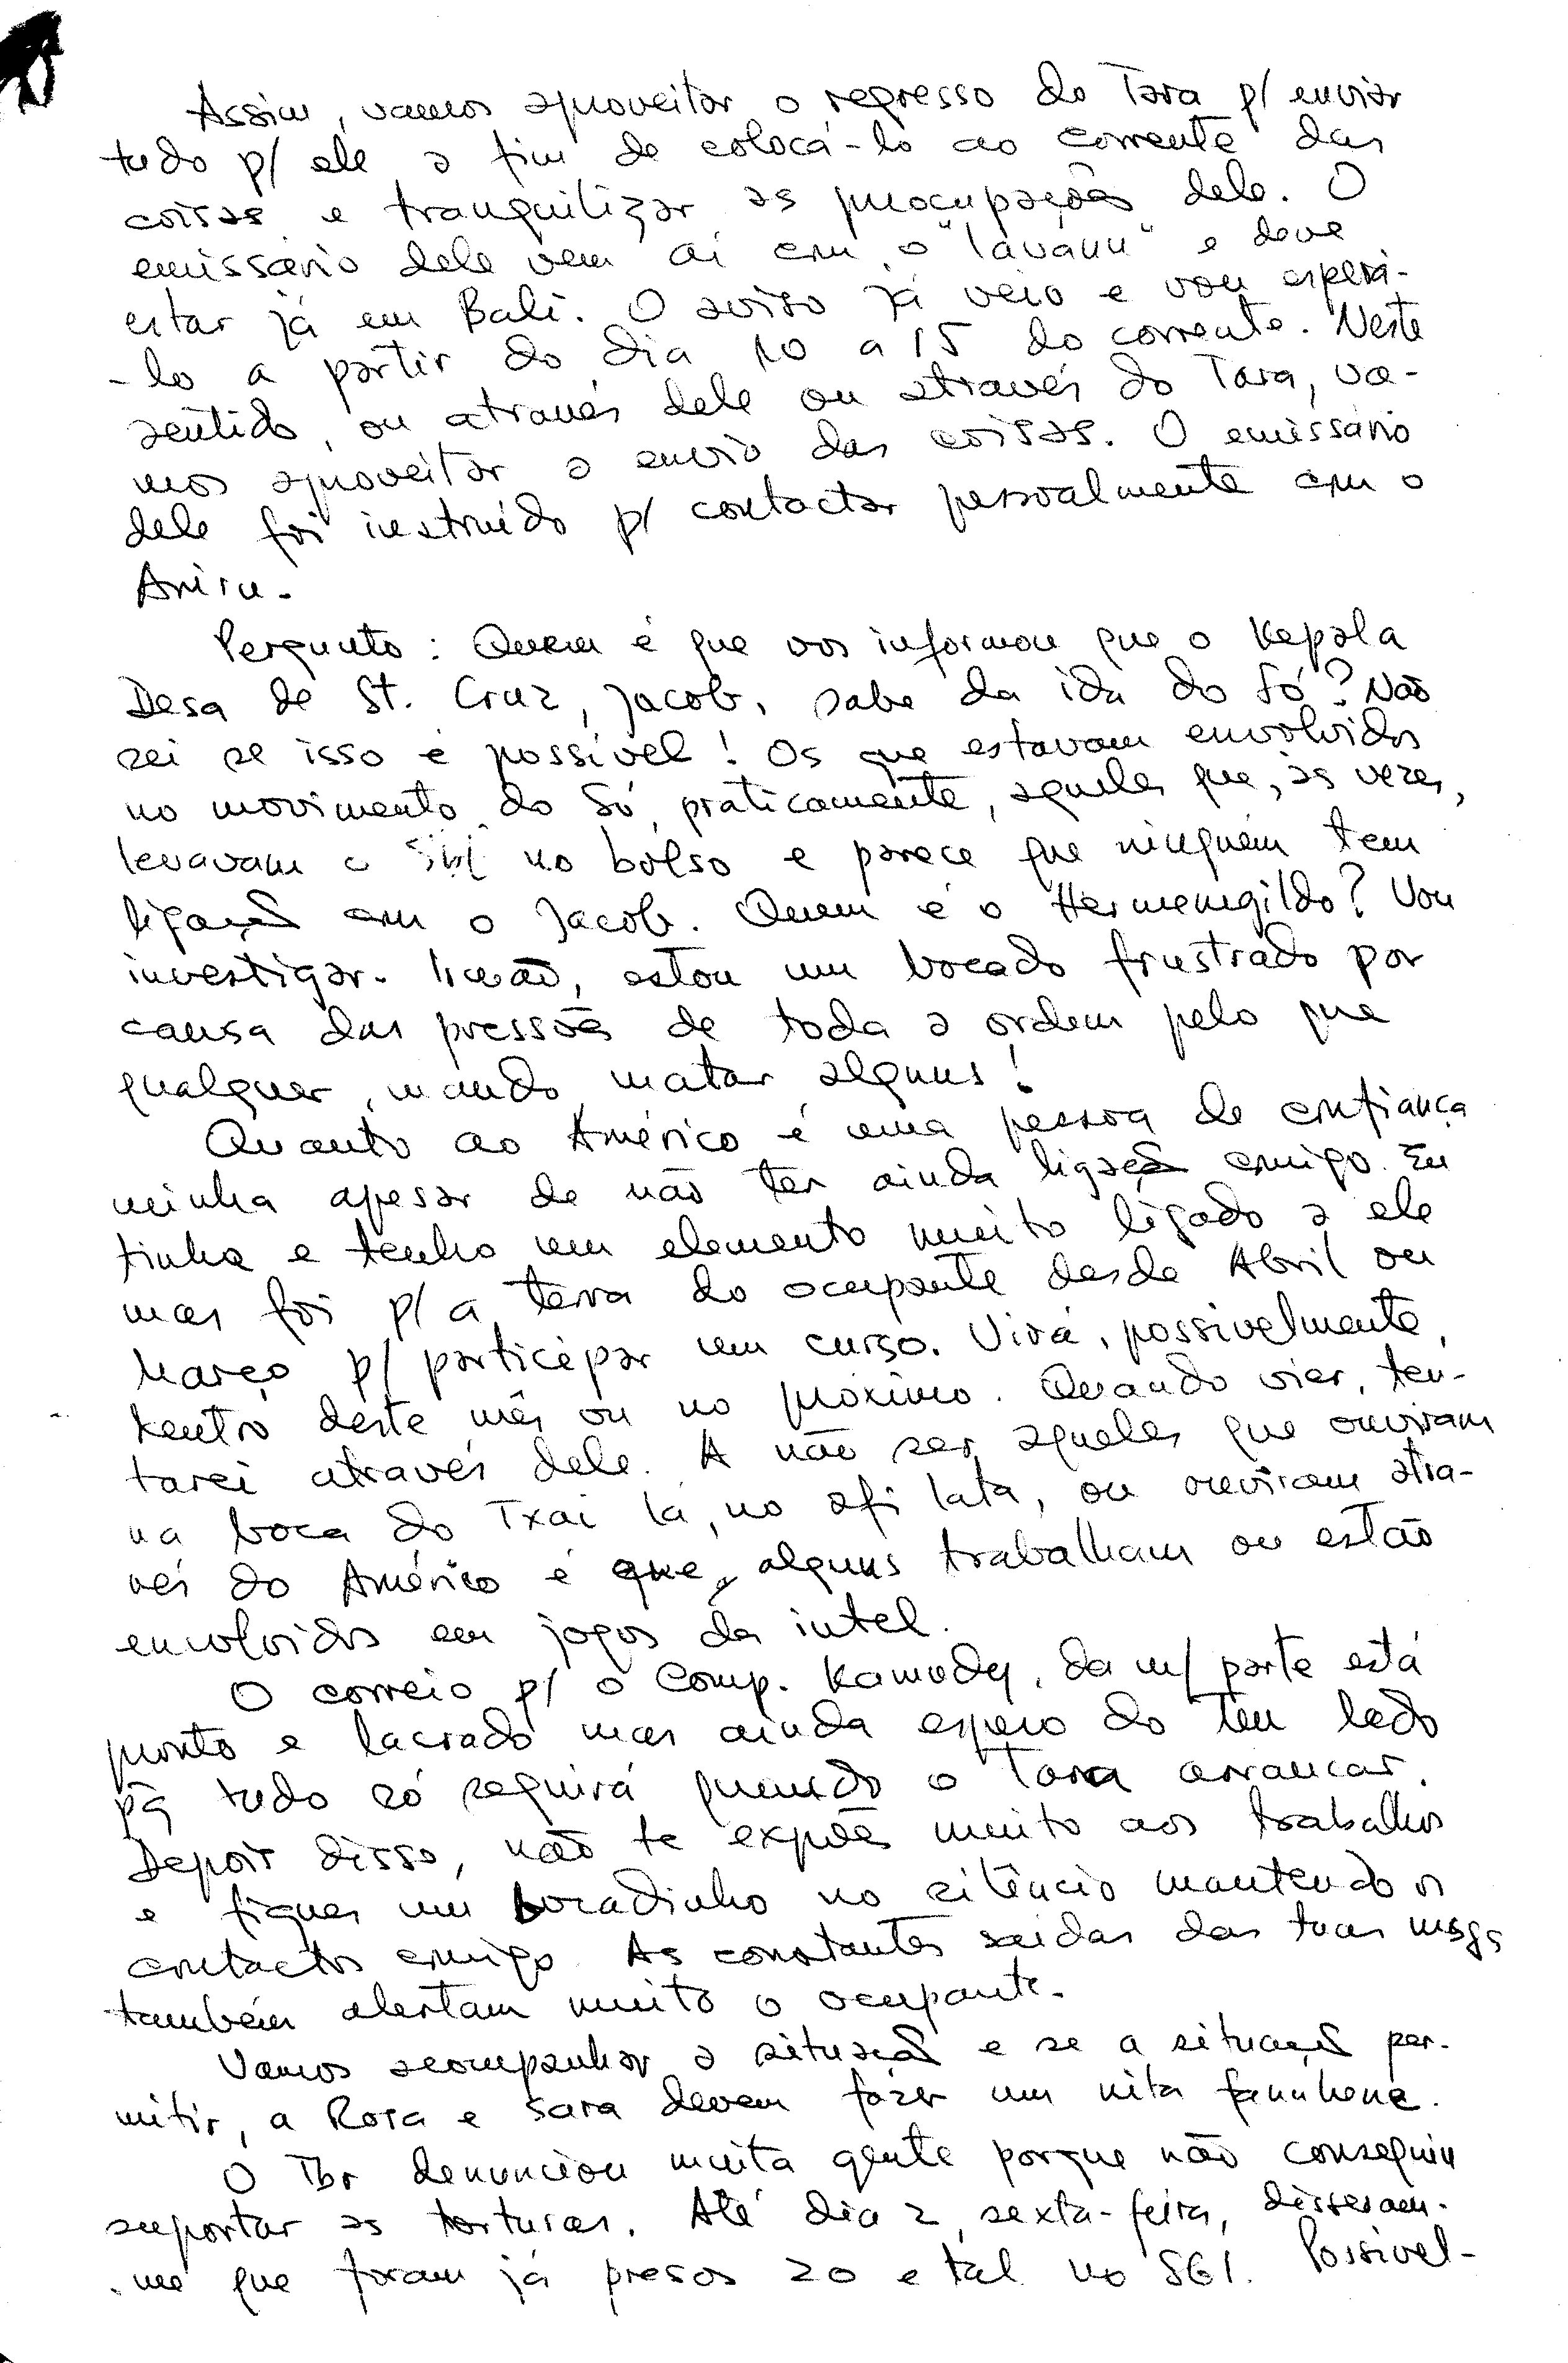 Assim, vamos aproveitar o regresso do Tara p/ enviar
tudo p/ ele a fim de colocá-lo ao corrente das
coisas e tranquilizar as preocupações dele. O
emissário dele vem aí com o "lavann" e deve
estar já em Bali. O aviso já veio e vou esperá-
-lo a partir do dia 10 a 15 do corrente. Neste
sentido, ou através dele ou através do Tara, va-
mos aproveitar o envio das coisas. O emissário
dele foi instruído p/ contactar pessoalmente com o
Aniru.
Pergunto: Quem é que vos informou que o Kepala
Desa de St. Cruz, Jacob, sabe da ida do Só? Não
sei se isso é possível! Os que estavam envolvidos
no movimento do Só, praticamente, aqueles que, às vezes,
levavam o no bolso e parece que ninguém tem
ligação com o Jacob. Quem é o Hermenegildo? Vou
investigar. Irmão, estou um bocado frustrado por
causa das pressões de toda a ordem pelo que
qualquer, mando matar alguns!
Quanto ao Américo é uma pessoa de confiança
minha apesar de não ter ainda ligação comigo. Eu
tinha e tenho um elemento muito ligado a ele
mas foi p/ a terra do ocupante desde Abril ou
Março p/ participar um curso. Virá, possivelmente,
dentro deste mês ou no próximo. Quando vier, ten-
tarei através dele. A não ser aqueles que ouviram
na boca do Txai lá, no afi lata, ou ouviram atra-
vés do Américo é que, alguns trabalham ou estão
envolvidos em jogos da intel.
O correio p/ o Comp. Kamudy, da m/ parte está
pronto e lacrado mas ainda espero do teu lado
pq tudo só seguirá quando o Tara arrancar.
Depois disso, não te expões muito aos trabalhos
e fiques um bocadinho no silêncio mantendo os
contactos comigo. As constantes saídas das tuas msgs
também alertam muito o ocupante.
Vamos acompanhar a situação e se a situação per-
mitir, a Rosa e Sara devem fazer um nita
O Tbr denunciou muita gente porque não conseguiu
suportar as torturas. Até dia 2, sexta-feira, disseram-
-me que foram já presos 20 e tal no SGI. Possivel-